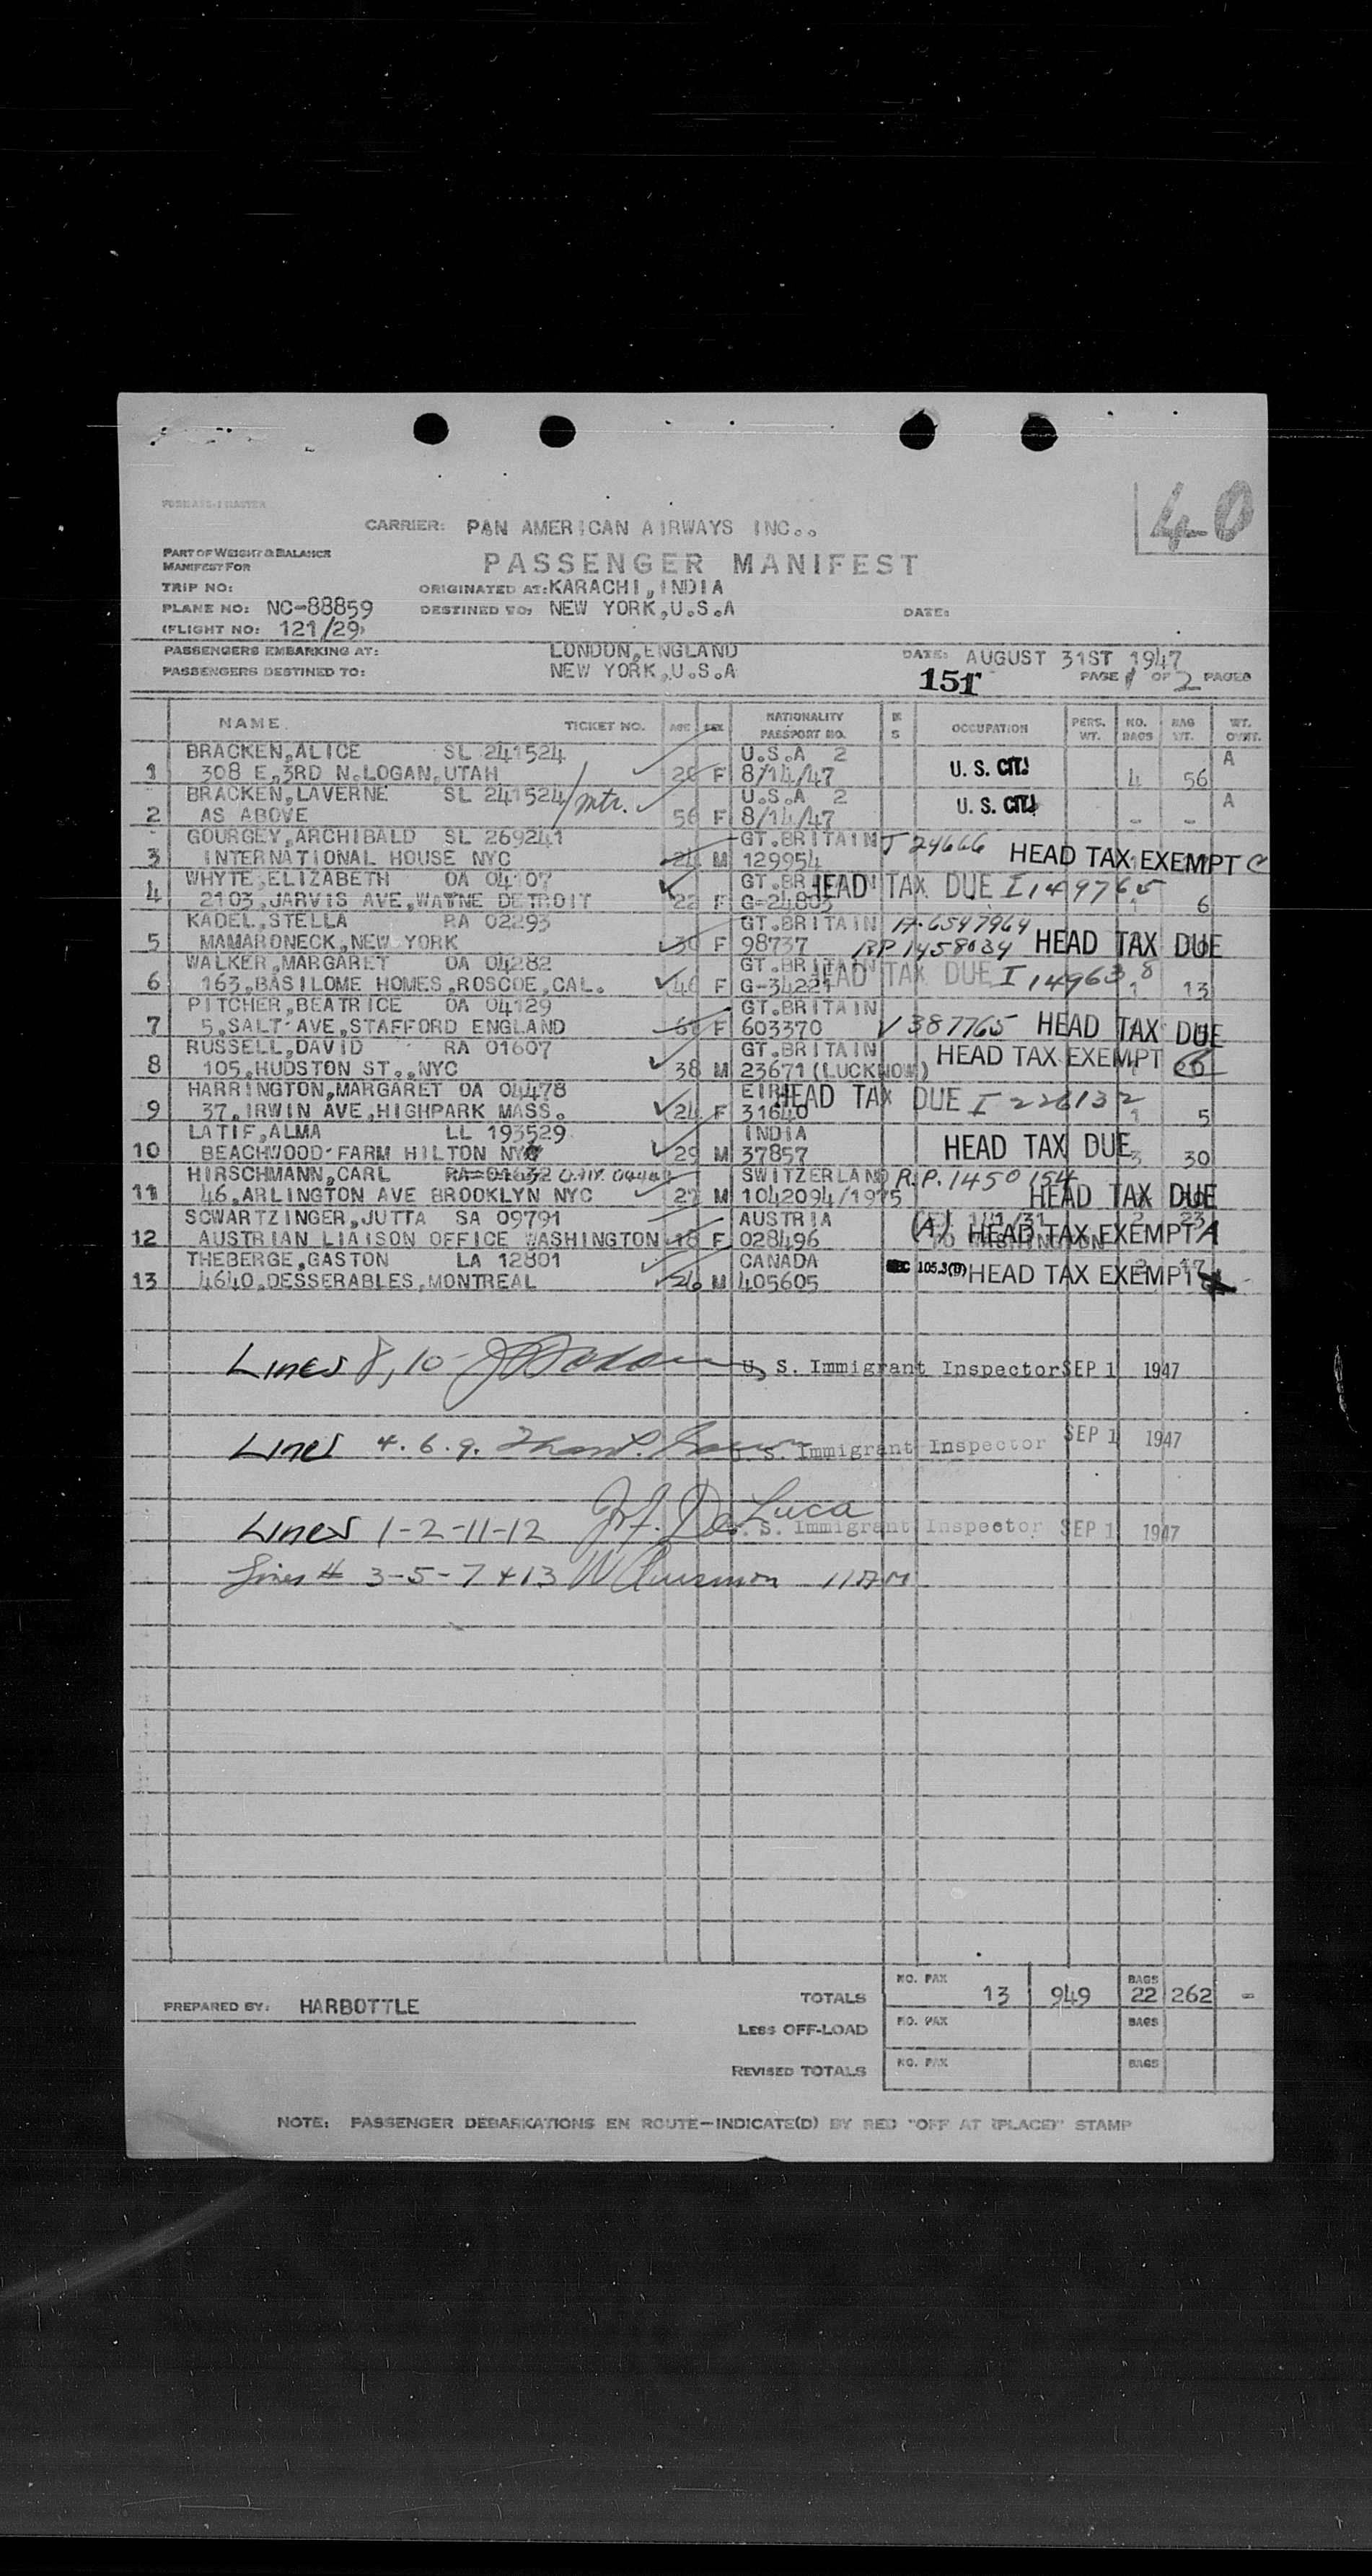 40
CARRIER: PAN AMERICAN AIRWAYS INC..
PART OF WEIGHT & BALANCE
MANIFEST FOR
PASSENGER MANIFEST
TRIP NO:
ORIGINATED AT: KARACHI, INDIA
PLANE NO: NC-88859
DESTINED TO: NEW YORK,U.S.A
DATE:
(FLIGHT NO: 121/29)
PASSENGERS EMBARKING AT: LONDON,ENGLAND
DATE: AUGUST 31ST 1947
PASSENGERS DESTINED TO: NEW YORK,U.S.A
151
PAGE 1 OF 2 PAGES
NAME. TICKET NO. AGE SEX NATIONALITY PASSPORT NO. OCCUPATION PERS. WT. NO. BAGS BAG WT. WT. OVHT.
BRACKEN,ALICE SL 241524 U.S.A 2 A
1 308 E.3RD N.LOGAN,UTAH F 8/14/47 U. S. CIT. 4 56
BRACKEN,LAVERNE SL 241524/mtr. U.S.A 2 A
2 AS ABOVE 56 F 8/14/47 U. S. CIT. - -
GOURGEY,ARCHIBALD SL 269241 GT.BRITAIN J 24666
3 INTERNATIONAL HOUSE NYC 24 M 129954 HEAD TAX EXEMPT C
WHYTE,ELIZABETH OA 04107 GT.BR HEAD TAX DUE I 149765
4 2103,JARVIS AVE,WAYNE DETROIT 22 F G-24803 1 6
KADEL,STELLA RA 02293 GT.BRITAIN A-6547964
5 MAMARONECK,NEW YORK 30 F 98737 RP 1458034 HEAD TAX DUE
WALKER,MARGARET OA 04282 GT.BRITAIN HEAD TAX DUE I 149638
6 163,BASILOME HOMES,ROSCOE,CAL. 46 F G-34221 1 13
PITCHER,BEATRICE OA 04129 GT.BRITAIN
7 5,SALT AVE,STAFFORD ENGLAND 61 F 603370 V 387765 HEAD TAX DUE
RUSSELL,DAVID RA 01607 GT.BRITAIN HEAD TAX EXEMPT
8 105,HUDSTON ST.,NYC 38 M 23671(LUCKNOW)
HARRINGTON,MARGARET OA 04478 EIRE HEAD TAX DUE I 226132
9 37,IRWIN AVE,HIGHPARK MASS. 24 F 31640 1 5
LATIF,ALMA LL 193529 INDIA
10 BEACHWOOD FARM HILTON NY 29 M 37857 HEAD TAX DUE 3 30
HIRSCHMANN,CARL RA-01632 SWITZERLAND R.P. 1450154
11 46,ARLINGTON AVE BROOKLYN NYC 27 M 1042094/1975 HEAD TAX DUE
SCWARTZINGER,JUTTA SA 09791 AUSTRIA
12 AUSTRIAN LIAISON OFFICE WASHINGTON 18 F 028496 (A) HEAD TAX EXEMPT A
THEBERGE,GASTON LA 12801 CANADA
13 4640,DESSERABLES,MONTREAL 26 M 405605 SEC 105.3(B) HEAD TAX EXEMPT
Lines 8, 10 U. S. Immigrant Inspector SEP 1 1947
Lines 4. 6. 9. U. S. Immigrant Inspector SEP 1 1947
Lines 1-2-11-12 De Luca U. S. Immigrant Inspector SEP 1 1947
Lines # 3-5-7 + 13
PREPARED BY: HARBOTTLE
TOTALS NO. PAX 13 949 BAGS 22 262 -
LESS OFF-LOAD NO. PAX BAGS
REVISED TOTALS NO. PAX BAGS
NOTE: PASSENGER DEBARKATIONS EN ROUTE—INDICATE(D) BY RED "OFF AT (PLACE)" STAMP